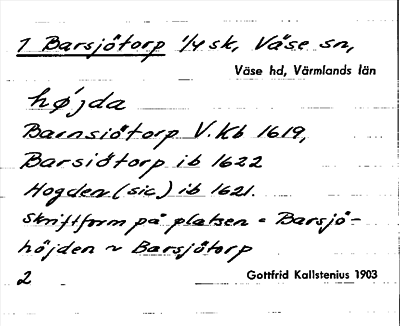 1 Barsjötorp 1/4 sk, Väse sn,
Väse hd, Värmlands län
høʹjda
Barnsiötorp V.Kb 1619,
Barsiötorp ib 1622
Hogden (sic) ib 1621.
Skriftform på platsen = Barsjö-
höjden ~ Barsjötorp
2
Gottfrid Kallstenius 1903